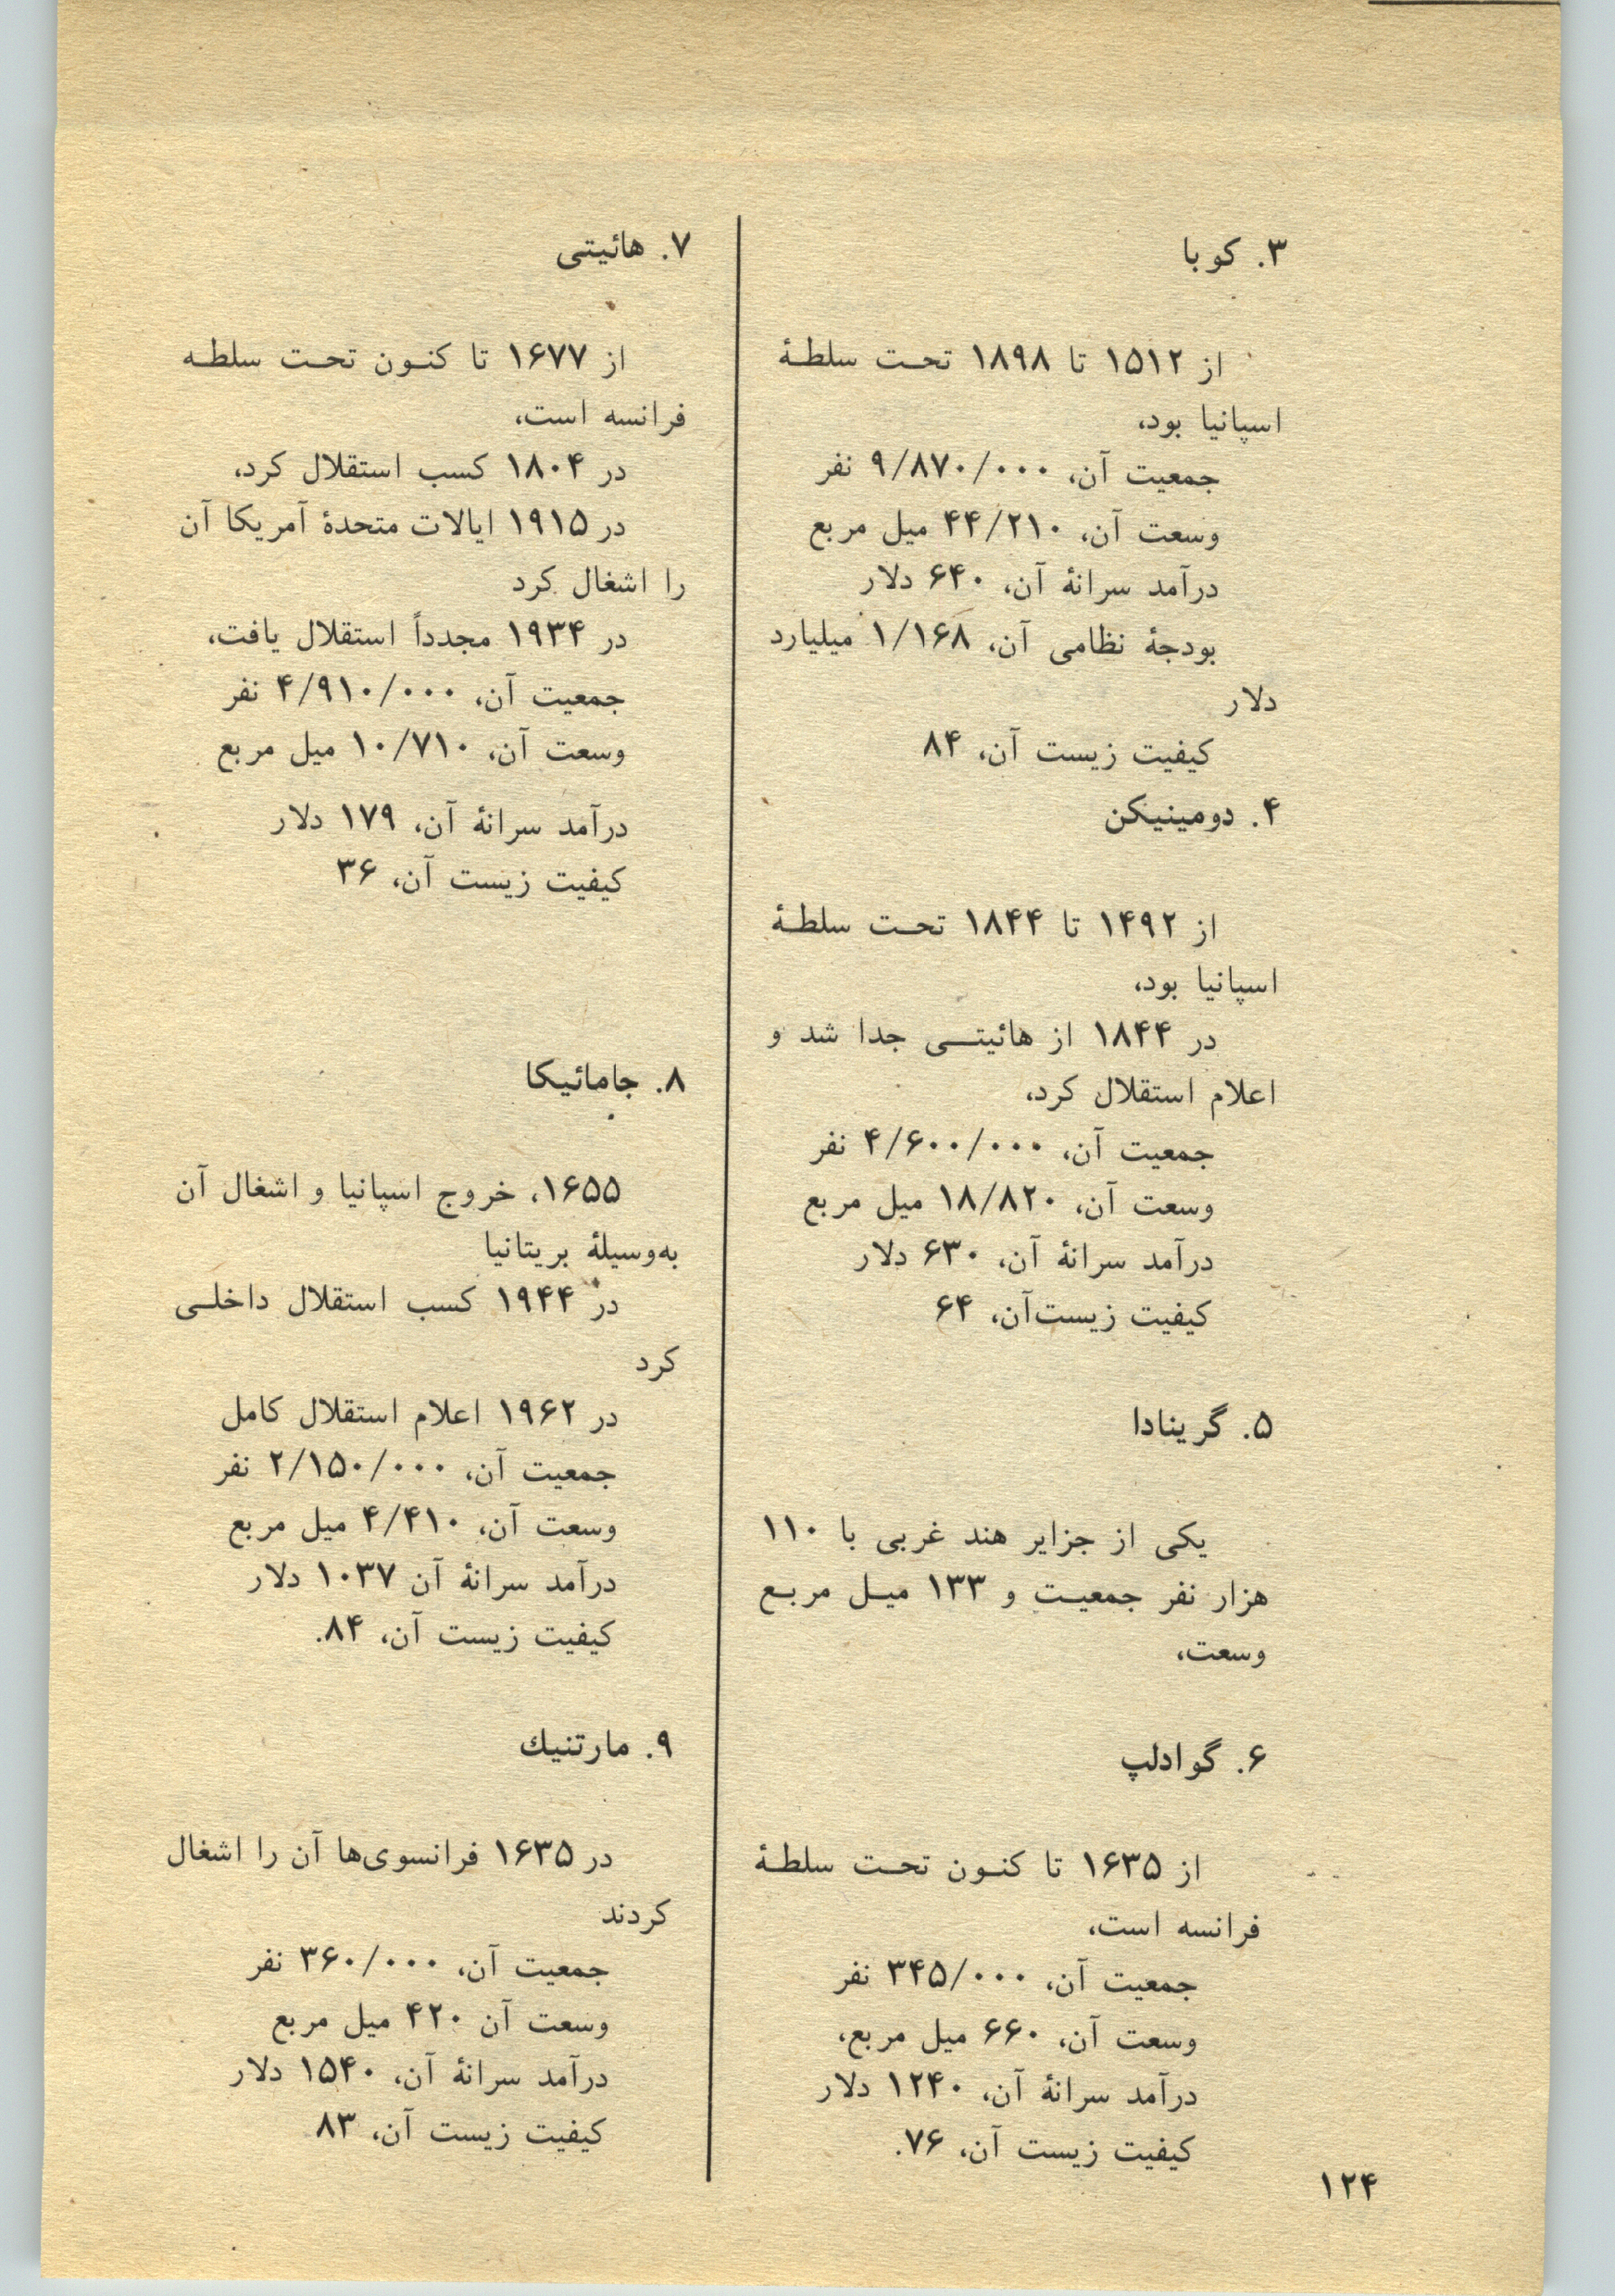 ۳. کوبا
از ۱۵۱۲ تا ۱۸۹۸ تحت سلطهٔ
اسپانیا بود،
جمعیت آن، ۹/۸۷۰/۰۰۰ نفر
وسعت آن، ۴۴/۲۱۰ میل مربع
درآمد سرانهٔ آن، ۶۴۰ دلار
بودجهٔ نظامی آن، ۱/۱۶۸ میلیارد
دلار
کیفیت زیست آن، ۸۴
۴. دومینیکن
از ۱۴۹۲ تا ۱۸۴۴ تحت سلطهٔ
اسپانیا بود،
در ۱۸۴۴ از هائیتی جدا شد و
اعلام استقلال کرد،
جمعیت آن، ۴/۶۰۰/۰۰۰ نفر
وسعت آن، ۱۸/۸۲۰ میل مربع
درآمد سرانهٔ آن، ۶۳۰ دلار
کیفیت زیست‌آن، ۶۴
۵. گرینادا
یکی از جزایر هند غربی با ۱۱۰
هزار نفر جمعیت و ۱۳۳ میل مربع
وسعت،
۶. گوادلپ
از ۱۶۳۵ تا کنون تحت سلطهٔ
فرانسه است،
جمعیت آن، ۳۴۵/۰۰۰ نفر
وسعت آن، ۶۶۰ میل مربع،
درآمد سرانهٔ آن، ۱۲۴۰ دلار
کیفیت زیست آن، ۷۶.
۷. هائیتی
از ۱۶۷۷ تا کنون تحت سلطه
فرانسه است،
در ۱۸۰۴ کسب استقلال کرد،
در ۱۹۱۵ ایالات متحدهٔ آمریکا آن
را اشغال کرد
در ۱۹۳۴ مجدداً استقلال یافت،
جمعیت آن، ۴/۹۱۰/۰۰۰ نفر
وسعت آن، ۱۰/۷۱۰ میل مربع
درآمد سرانهٔ آن، ۱۷۹ دلار
کیفیت زیست آن، ۳۶
۸. جامائیکا
۱۶۵۵، خروج اسپانیا و اشغال آن
به‌وسیلهٔ بریتانیا
در ۱۹۴۴ کسب استقلال داخلی
کرد
در ۱۹۶۲ اعلام استقلال کامل
جمعیت آن، ۲/۱۵۰/۰۰۰ نفر
وسعت آن، ۴/۴۱۰ میل مربع
درآمد سرانهٔ آن ۱۰۳۷ دلار
کیفیت زیست آن، ۸۴.
۹. مارتنیك
در ۱۶۳۵ فرانسوی‌ها آن را اشغال
کردند
جمعیت آن، ۳۶۰/۰۰۰ نفر
وسعت آن ۴۲۰ میل مربع
درآمد سرانهٔ آن، ۱۵۴۰ دلار
کیفیت زیست آن، ۸۳
۱۲۴